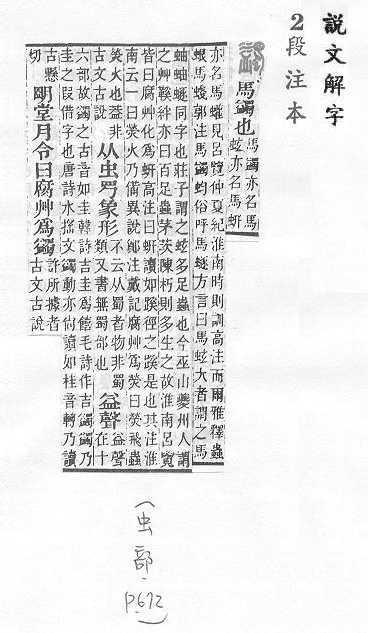 說文解字
2段注本
馬蠲也
馬蠲亦名馬
蚿亦名馬蚈
亦名馬蠸見呂覽仲夏紀淮南時則訓高注而爾雅釋蟲
蛝馬䗃郭注馬蠲蚐俗呼馬蠤方言曰馬蚿大者謂之馬
蚰蚰蠤同字也莊子謂之蚿多足蟲也今巫山夔州人謂
之艸鞵絆亦曰百足蟲茅茨陳朽則多生之故淮南呂覽
皆曰腐艸化爲蚈高注曰蚈讀如蹊徑之蹊是也其注淮
南云一曰熒火乃備異說鄭注戴記腐艸爲熒曰熒飛蟲
熒火也葢非
古文古說
从虫 象形
不云从蜀者物非蜀
類又書無蜀部也
益聲
益聲
在十
六部故蠲之古音如圭韓詩吉圭爲饎毛詩作吉蠲蠲乃
圭之叚借字也唐詩水搽文蠲動亦尙讀如桂音轉乃讀
古懸
切
明堂月令曰腐艸爲蠲
許所據者
古文古說
(虫部.
P.672)